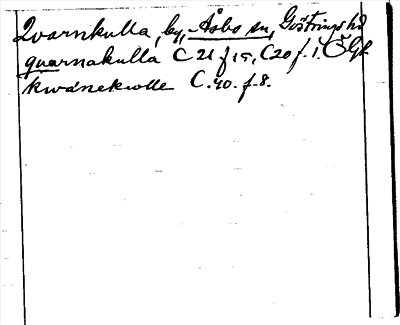 Qvarnkulla, by, Åsbo sn, Göstrings hd
quarnakulla C 21 f 15, C20 f. 1. ÖGl.
kwdnekwlle C. 40. f. 8.